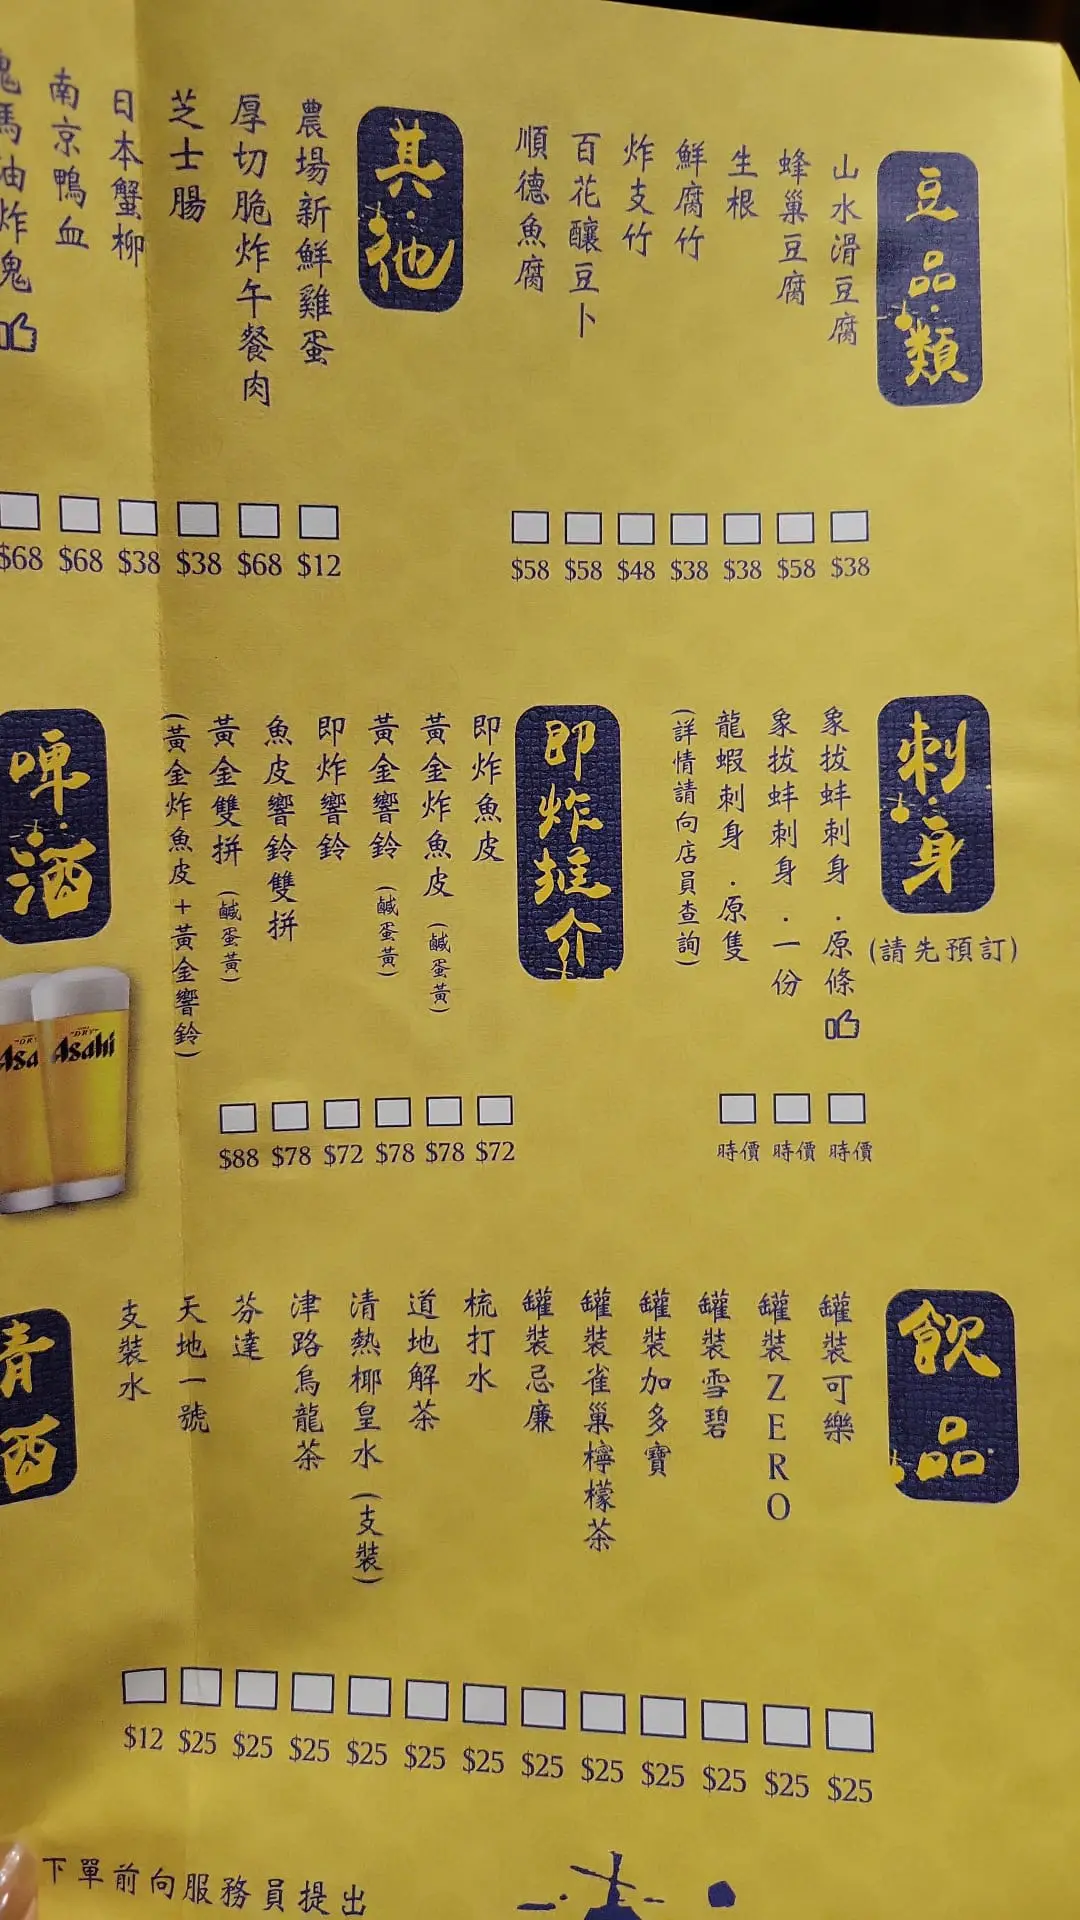 豆品類
山水滑豆腐
蜂巢豆腐
生根
鮮腐竹
炸支竹
百花釀豆卜
順德魚腐
$58 $58 $48 $38 $38 $58 $38
其他
農場新鮮雞蛋
厚切脆炸午餐肉
芝士腸
日本蟹柳
南京鴨血
馬油炸鬼
$68 $68 $38 $38 $68 $12
刺身
(請先預訂)
象拔蚌刺身.原條
象拔蚌刺身.一份
龍蝦刺身.原隻
(詳情請向店員查詢)
時價 時價 時價
即炸推介
即炸魚皮
黃金炸魚皮(鹹蛋黃)
黃金響鈴(鹹蛋黃)
即炸響鈴
魚皮響鈴雙拼
黃金雙拼(鹹蛋黃)
(黃金炸魚皮+黃金響鈴)
$88 $78 $72 $78 $78 $72
啤酒
Asahi
飲品
罐裝可樂
罐裝ZERO
罐裝雪碧
罐裝加多寶
罐裝雀巢檸檬茶
罐裝忌廉
梳打水
道地解茶
清熱椰皇水(支裝)
津路烏龍茶
芬達
天地一號
支裝水
$12 $25 $25 $25 $25 $25 $25 $25 $25 $25 $25 $25 $25
酒
下單前向服務員提出